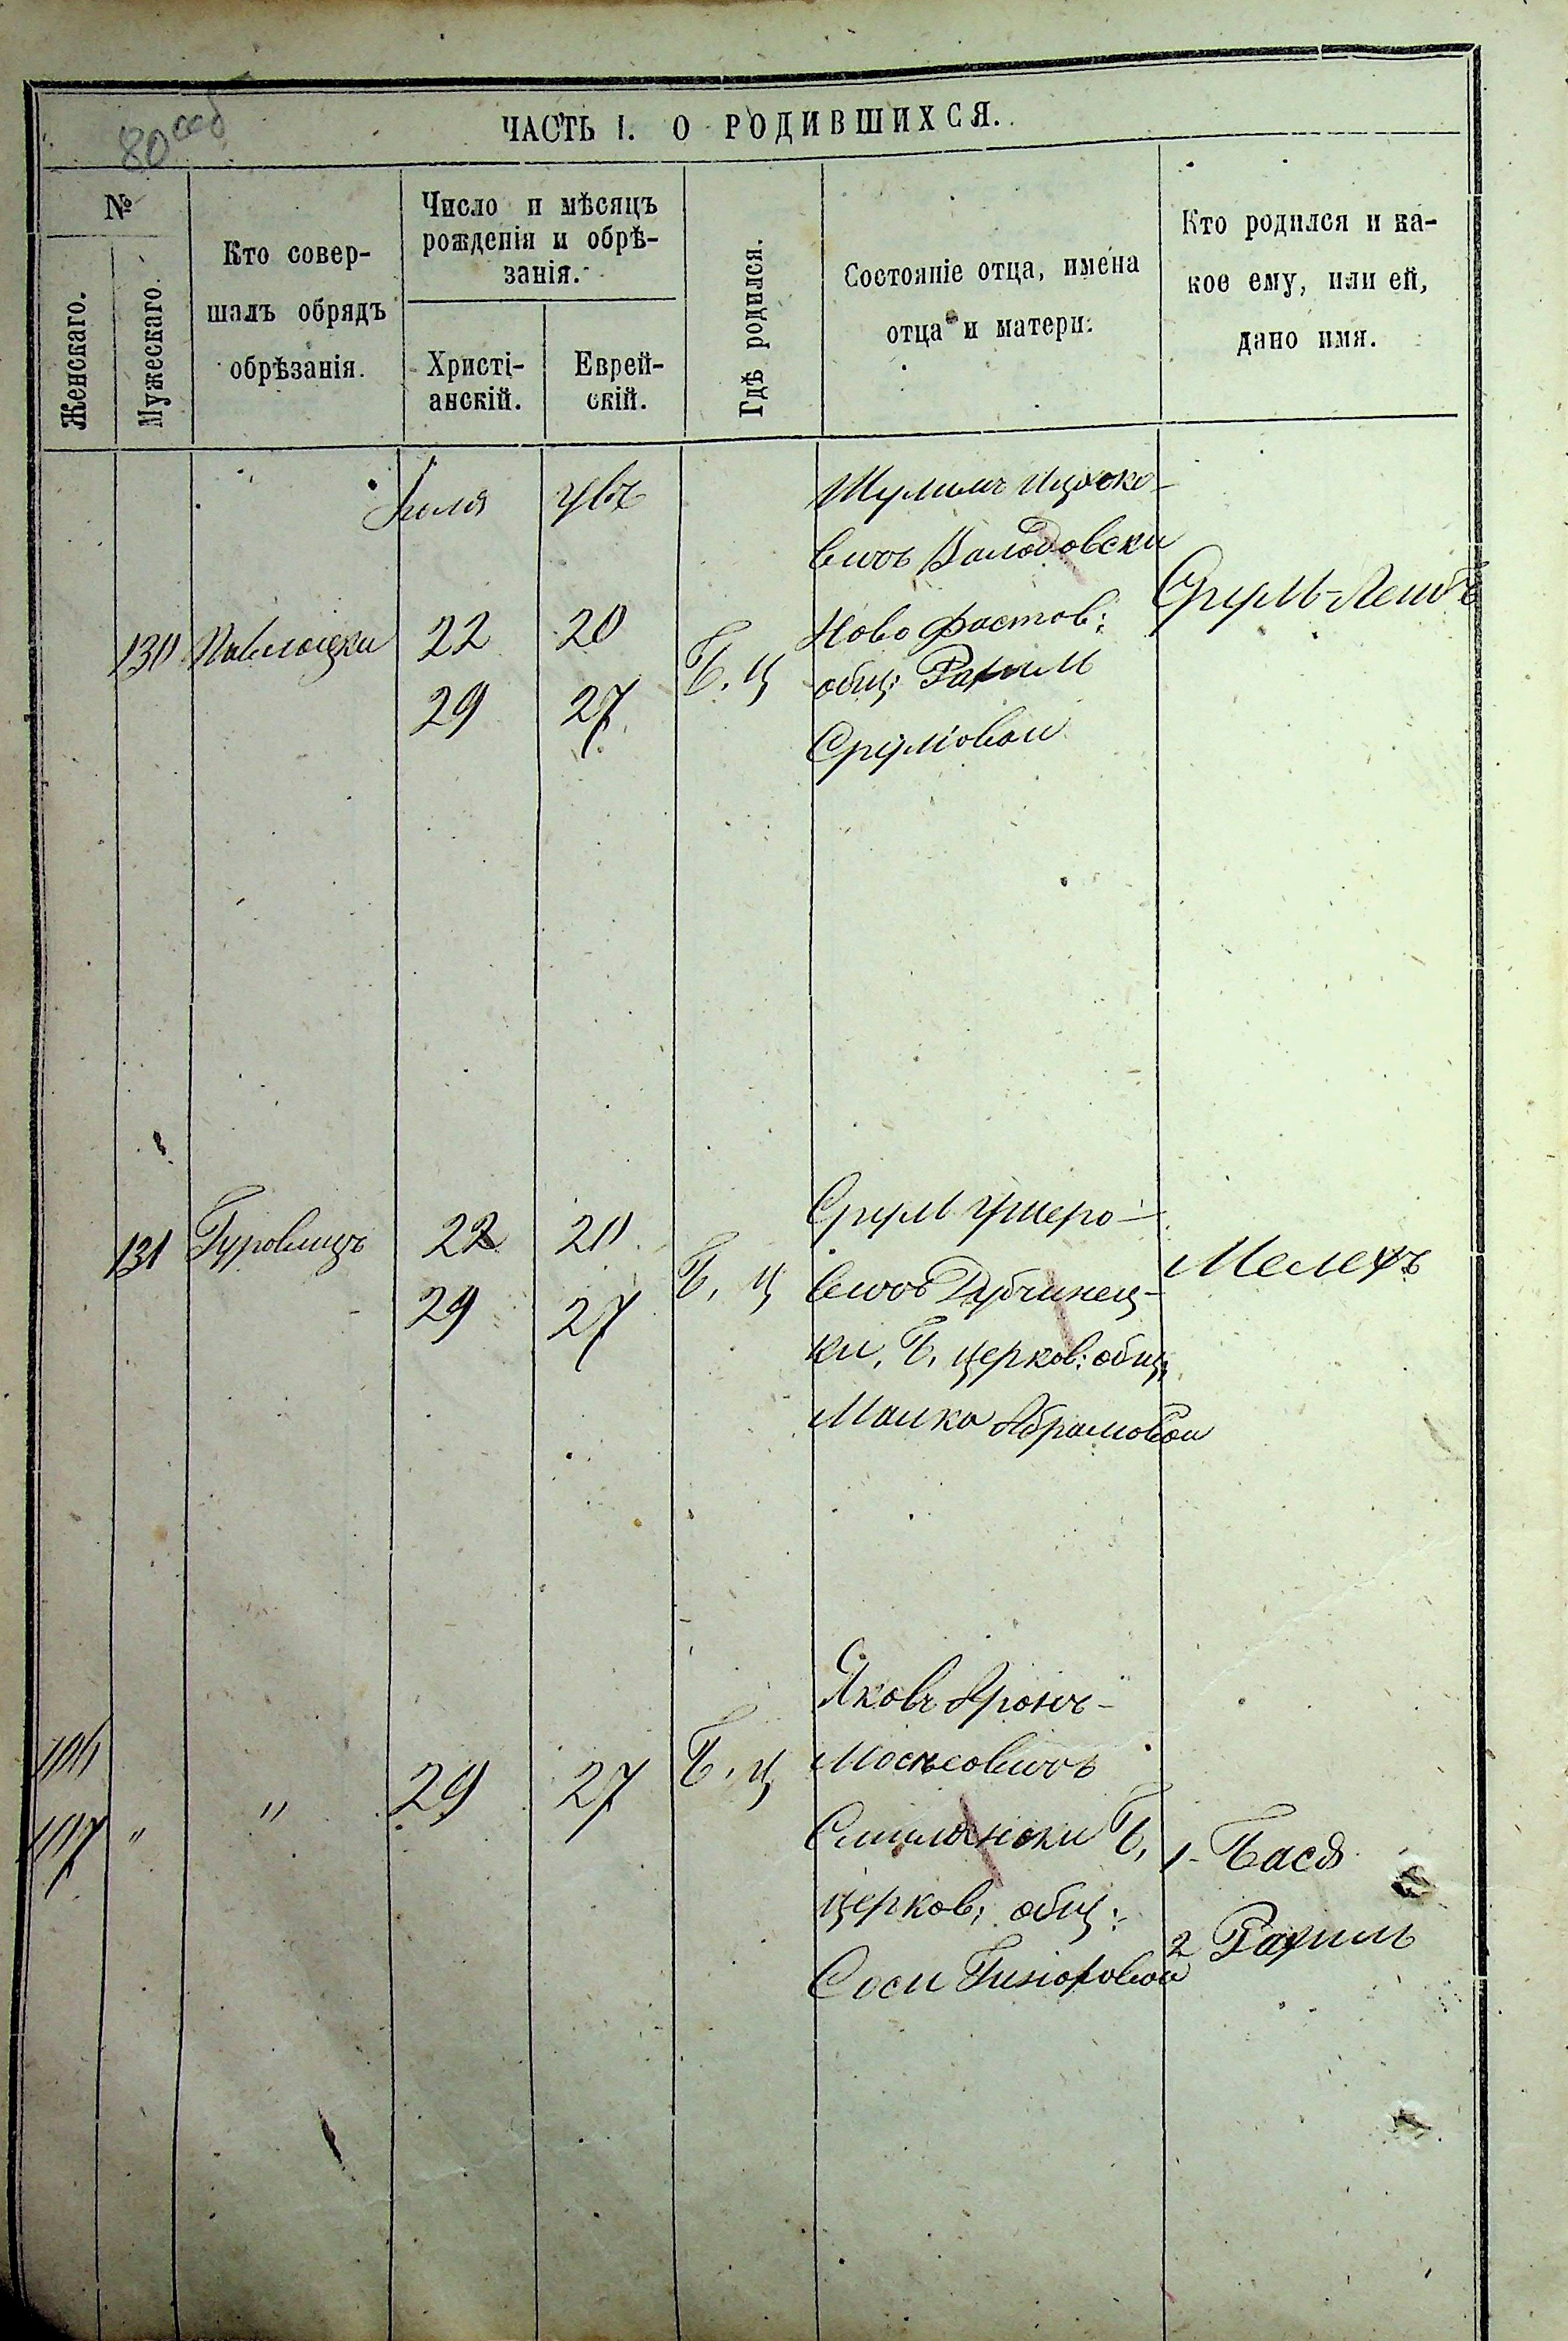 80 об
ЧАСТЬ I. О РОДИВШИХСЯ.
№
Женскаго.
Мужескаго.
Кто совер-
шалъ обрядъ
обрѣзанія.
Число и мѣсяцъ
рожденія и обрѣ-
занія.
Христі-
анскій.
Еврей-
скій.
Гдѣ родился.
Состояніе отца, имена
отца и матери.
Кто родился и ка-
кое ему, или ей,
дано имя.
Іюля
130 Паволоцки 22 20 Б. Ц
29 27
Шулимъ Ицко-
вичъ Володовски
Ново Фастов:
общ: Рахиль
Сруливои
Сруль-Лейбъ
131 Гуровицъ 22 20 Б. Ц
29 27
Сруль Ушеро-
вичъ Дубчинец-
ки, Б. церков: общ:
Малка Абрамовои
Мелехъ
106
107 " " 29 27 Б. Ц
Яковъ Аронъ-
Мосьеовичъ
Смилянски Б.
церков: общ:
Соси
1- Бася
2 Рахиль